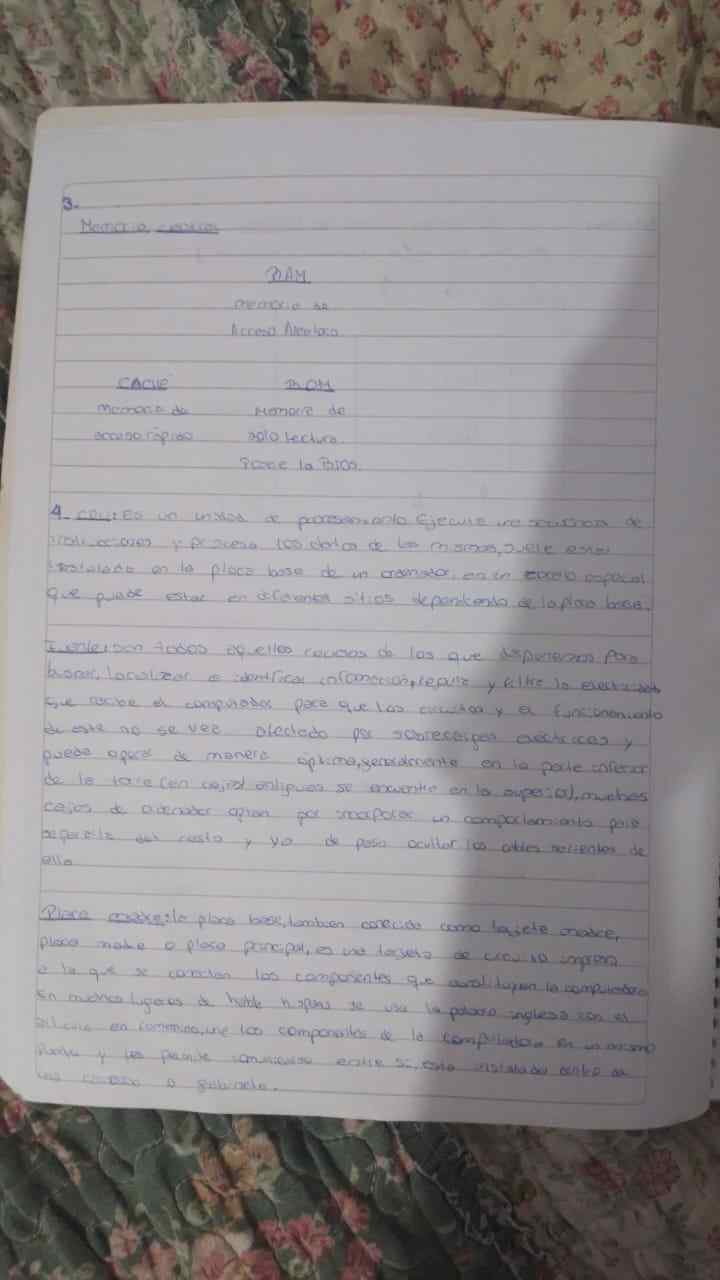 3.
Memoria
RAM
memoria de
Acceso Aleatorio
CACHÉ ROM
memoria de Memoria de
acceso rápido solo lectura
Posee la BIOS.
4. CPU: Es un unidad de procesamiento Ejecuta una secuencia de
instrucciones y procesa los datos de las mismas, suele estar
instalado en la placa base de un ordenador, en un espacial
que puede estar en diferentes sitios dependiendo de la placa base.
son todos aquellos recursos de los que disponemos para
buscar, localizar e identificar información, regula y filtra la electricidad
que recibe el computador para que los circuitos y el funcionamiento
de este no se vea afectado por sobrecargas eléctricas y
puede operar de manera óptima, generalmente en la parte inferior
de la torre (en cajas antiguas se encuentra en la superior), muchas
cajas de ordenador optan por incorporar un compartamiento para
separarla del resto y ya de paso ocultar los cables salientes de
ella.
Placa madre: la placa base, también conocida como tarjeta madre,
placa madre o placa principal, es una tarjeta de circuito impreso
a la que se conectan los componentes que la computadora
En muchos lugares de habla hispana se usa la palabra inglesa con el
en femenino, une los componentes de la computadora en un mismo
y les permite comunicarse entre sí, esta instalada dentro de
una o gabinete.